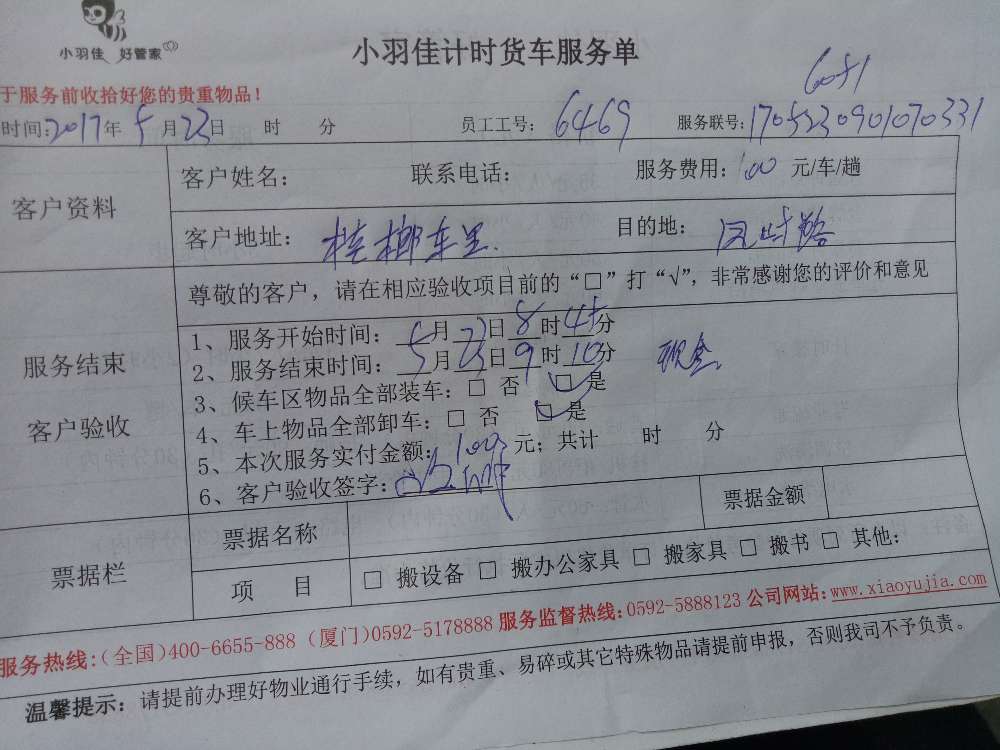 小羽佳 好管家
小羽佳计时货车服务单
6051
于服务前收拾好您的贵重物品!
时间:2017年5月23日 时 分 员工工号: 6469 服务联号: 1705230901070331
客户资料
客户姓名: 联系电话: 服务费用: 100 元/车/趟
客户地址: 槟榔车里 目的地:
尊敬的客户，请在相应验收项目前的“□”打“√”，非常感谢您的评价和意见
服务结束
客户验收
1、服务开始时间: 5月23日8时45分
2、服务结束时间: 5月23日9时10分 现金
3、候车区物品全部装车: □ 否 □ 是
4、车上物品全部卸车: □ 否 □ 是
5、本次服务实付金额: 100 元; 共计 时 分
6、客户验收签字:
票据栏
票据名称 票据金额
项 目 □ 搬设备 □ 搬办公家具 □ 搬家具 □ 搬书 □ 其他:
服务热线:(全国)400-6655-888 (厦门)0592-5178888 服务监督热线:0592-5888123 公司网站:www.xiaoyujia.com
温馨提示: 请提前办理好物业通行手续，如有贵重、易碎或其它特殊物品请提前申报，否则我司不予负责。